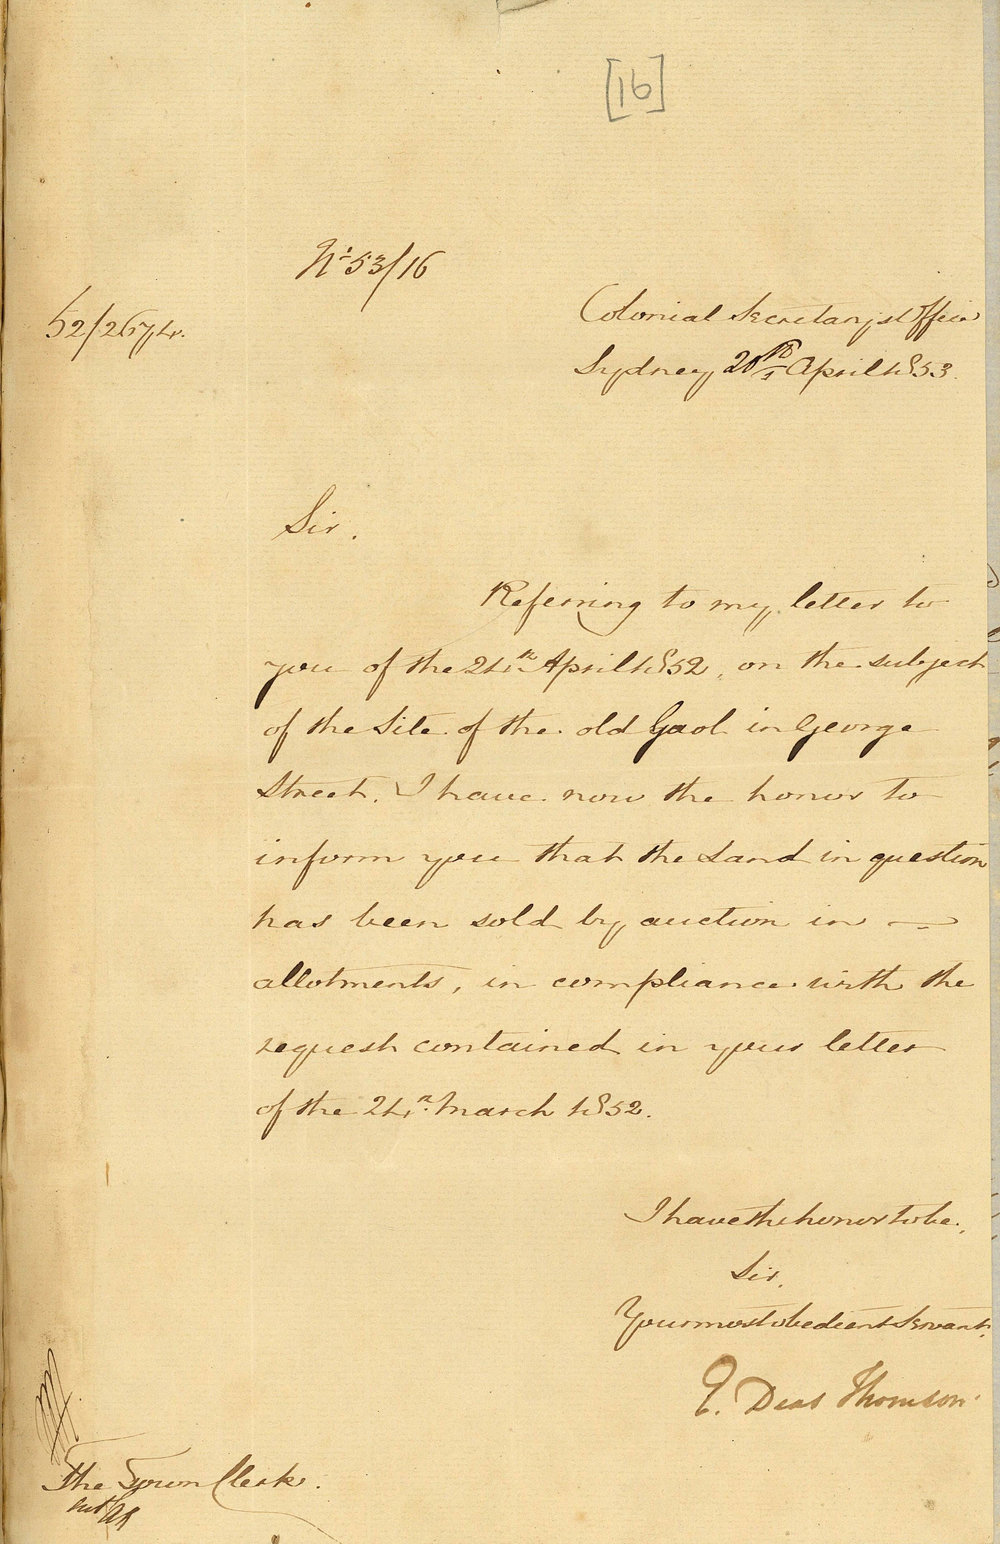 [16]
No 53/16
52/2674.
Colonial Secretary's Office
Sydney 20th April 1853.
Sir.
Referring to my letter to
you of the 24th April 1852, on the subject
of the Site of the old Gaol in George
Street. I have now the honor to
inform you that the Land in question
has been sold by auction in
allotments, in compliance with the
request contained in your letter
of the 24th March 1852.
I have the honor to be,
Sir,
Your most obedient Servant,
E. Deas Thomson
The Town Clerk.